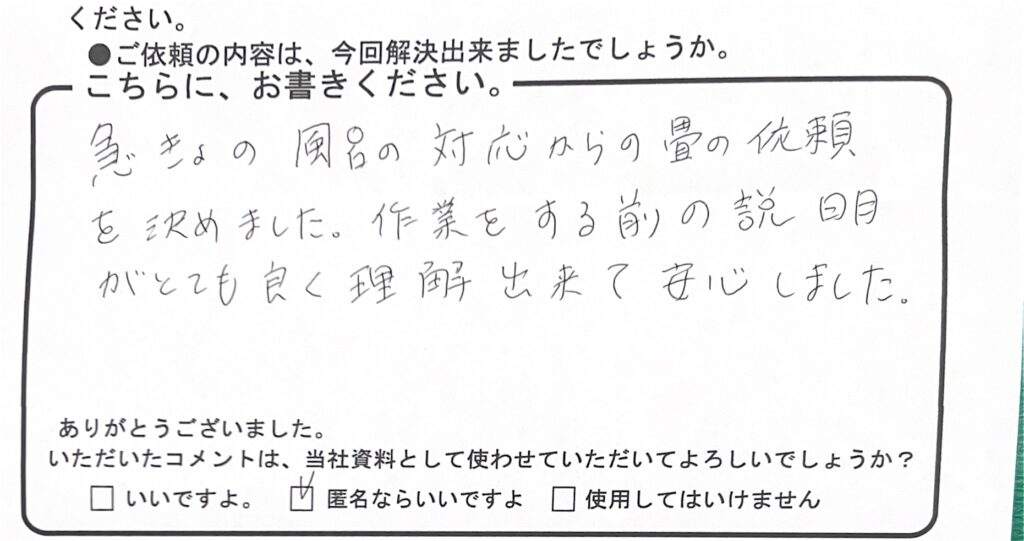 ください。
●ご依頼の内容は、今回解決出来ましたでしょうか。
こちらに、お書きください。
急きょの風呂の対応からの畳の依頼
を決めました。作業をする前の説明
がとても良く理解出来て安心しました。
ありがとうございました。
いただいたコメントは、当社資料として使わせていただいてよろしいでしょうか？
□いいですよ。 ☑匿名ならいいですよ □使用してはいけません